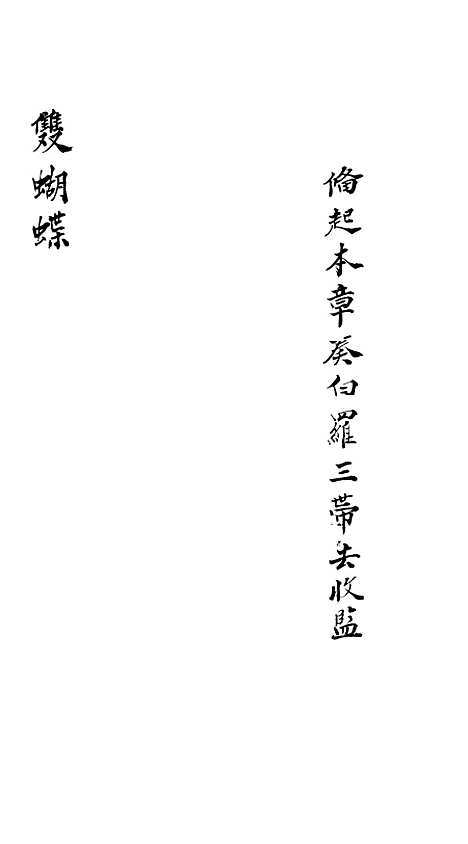 俻起本章癸白羅三帶去收監
雙蝴蝶